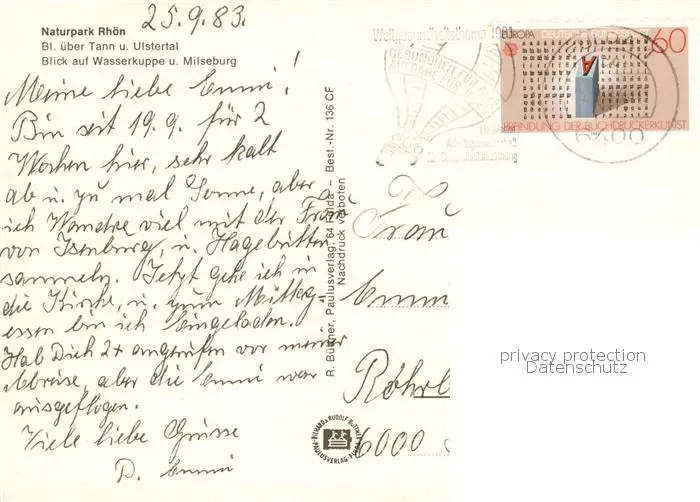 25.9.83.
Naturpark Rhön
Bl. über Tann u. Ulstertal
Blick auf Wasserkuppe u. Milseburg
Meine liebe Emmi!
Bin seit 19.9. für 2
Wochen hier, sehr kalt
ab u. zu mal Sonne, aber
ich Wandre viel mit der Frau
von Isenburg, u. Hagebutten
sammeln. Jetzt gehe ich in
die Kirche, u. zum Mittag-
essen bin ich eingeladen.
Hab Dich 2x angerufen vor meiner
Abreise, aber die Emmi war
ausgeflogen.
Viele liebe Grüsse
D. Emmi
R. Büttner, Paulusverlag, 64 Fulda – Best.-Nr. 136 CF
Nachdruck verboten
RICHARD & RUDOLF BÜTTNER
PAULUSVERLAG · FULDA
Weltgesundheitsthema 1981
GESUNDHEIT FÜR ALLE
AUFGABE FÜR
EUROPA DEUTSCHE BUNDESPOST
60
A
ERFINDUNG DER BUCHDRUCKERKUNST
6400
Frau
Emmi
6000
privacy protection
Datenschutz